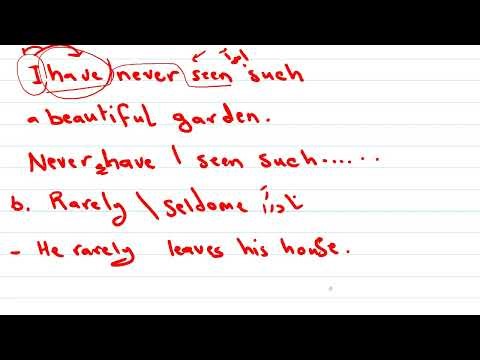 I have never seen such
a beautiful garden.
Never have I seen such......
b. Rarely \ seldome نادرا
- He rarely leaves his house.